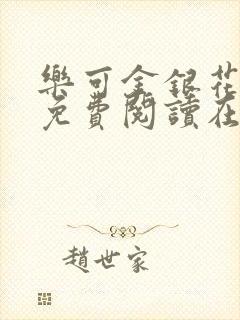 樂可金銀花
免費閱讀在
趙世家